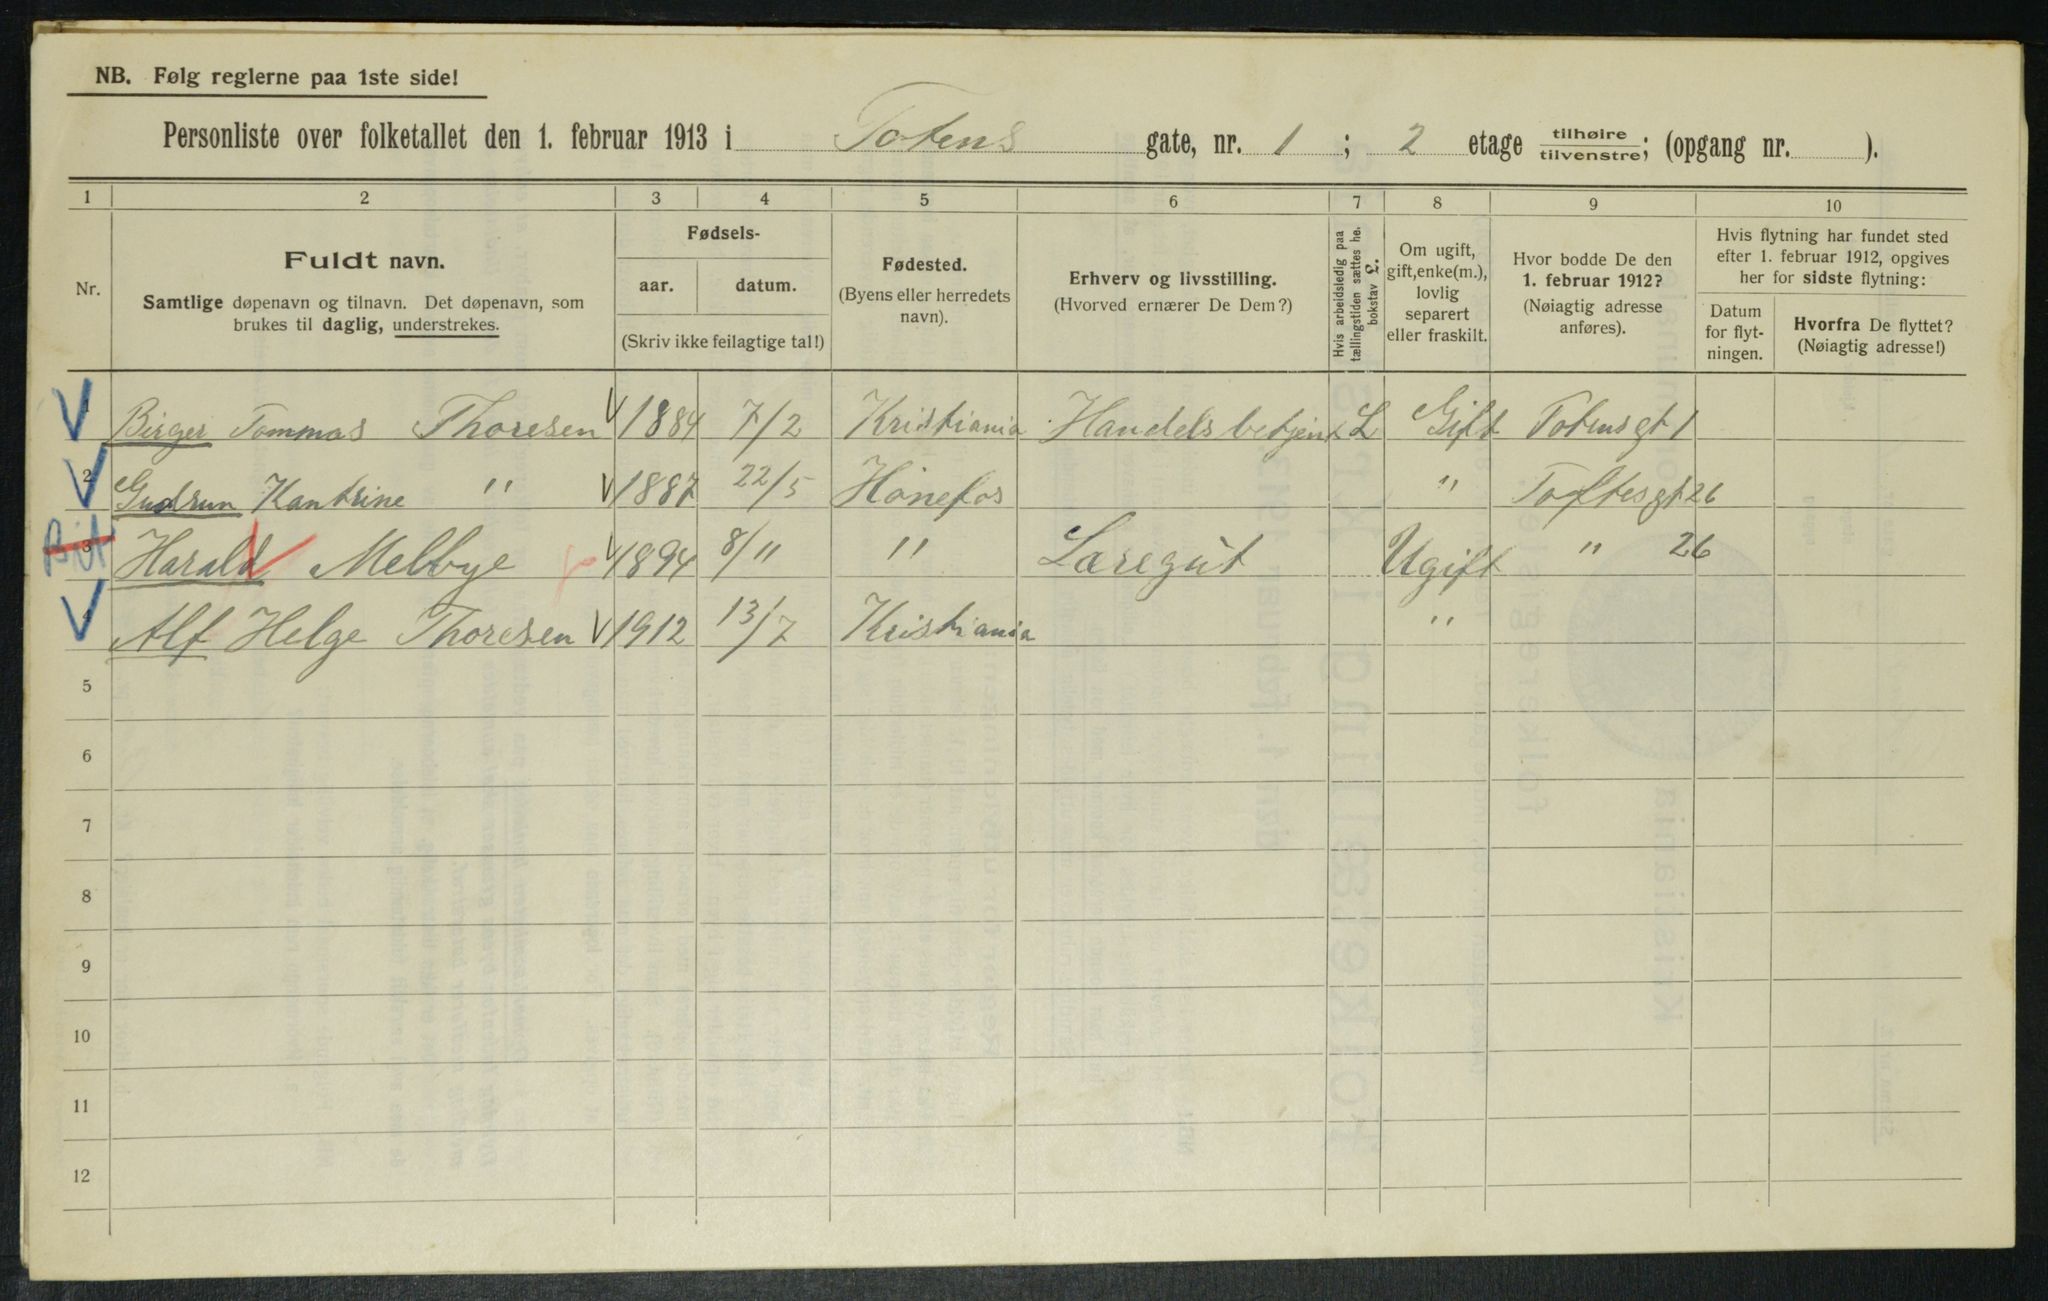 NB. Følg reglerne paa 1ste side!
Personliste over folketallet den 1. februar 1913 i Totens gate, nr. 1 ; 2 etage tilhøire tilvenstre; (opgang nr. ).
1 2 3 4 5 6 7 8 9 10
Nr.
Fuldt navn.
Samtlige døpenavn og tilnavn. Det døpenavn, som
brukes til daglig, understrekes.
Fødsels-
aar. datum.
(Skriv ikke feilagtige tal!)
Fødested.
(Byens eller herredets
navn).
Erhverv og livsstilling.
(Hvorved ernærer De Dem?)
Hvis arbeidsledig paa
tællingstiden sættes her
bokstav L.
Om ugift,
gift, enke(m.),
lovlig
separert
eller fraskilt.
Hvor bodde De den
1. februar 1912?
(Nøiagtig adresse
anføres).
Hvis flytning har fundet sted
efter 1. februar 1912, opgives
her for sidste flytning:
Datum
for flyt-
ningen.
Hvorfra De flyttet?
(Nøiagtig adresse!)
1 Birger Tommas Thoresen 1884 7/2 Kristiania Handelsbetjent L Gift Totensgt 1
2 Gudrun Kantrine " 1887 22/5 Hönefos " Toftesgt 26
3 Harald Melbye 1894 8/" " Læregut Ugift " 26
4 Alf Helge Thoresen 1912 13/7 Kristiania "
5
6
7
8
9
10
11
12